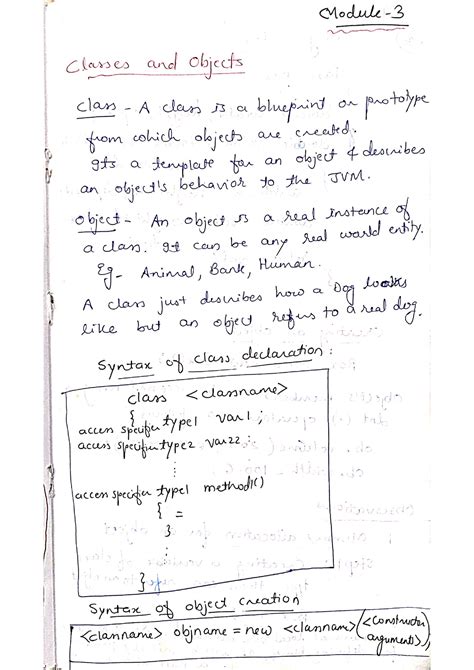 Module-3
Classes and Objects
Class - A class is a blueprint or prototype
from which objects are created.
Its a template for an object & describes
an object's behavior to the JVM.
Object - An object is a real instance of
a class. It can be any real world entity.
Eg - Animal, Bank, Human.
A class just describes how a Dog looks
like but an object refers to a real dog.
Syntax of class declaration:
class <classname>
{
access specifier type1 var1;
access specifier type2 var22:
:
access specifier type1 method1()
{ =
}
:
}
Syntax of object creation
<classname> objname = new <classname>(<constructor
arguments>);